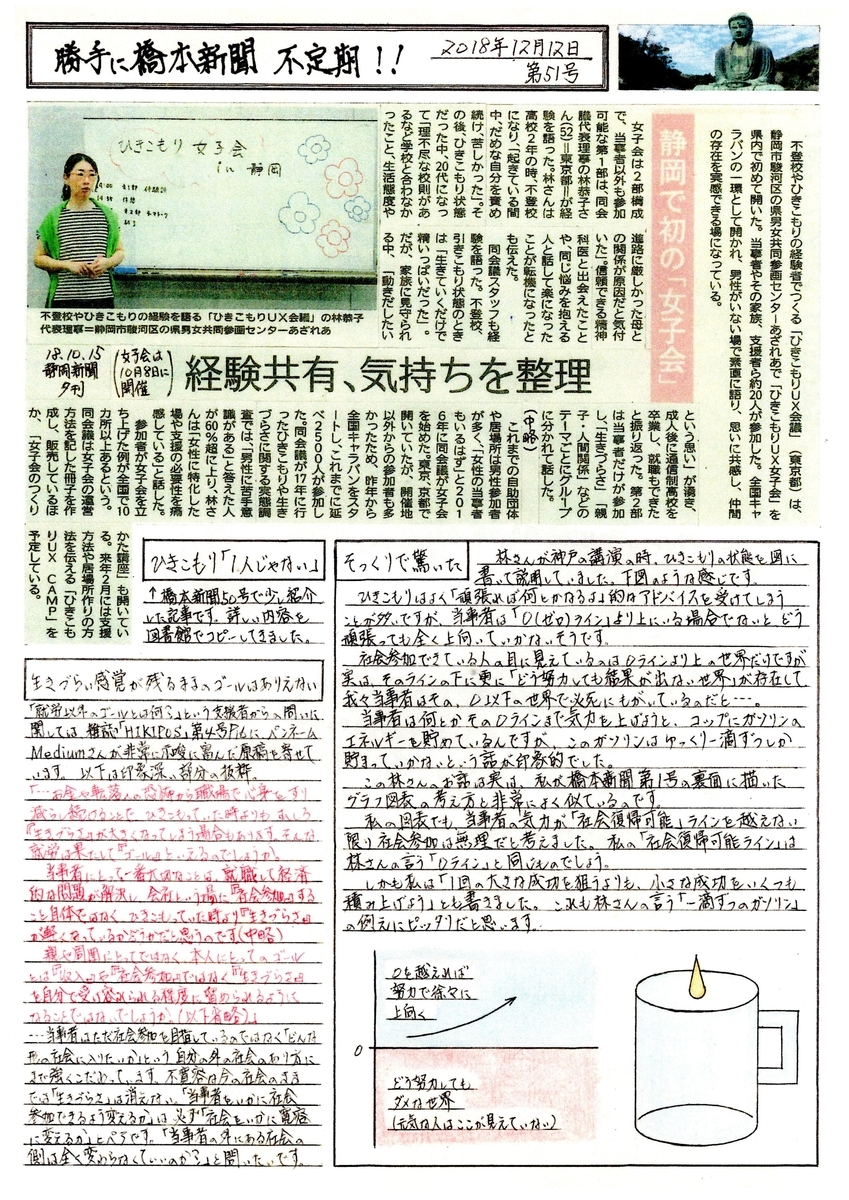 勝手に橋本新聞 不定期!!
2018年12月12日
第51号
静岡で初の「女子会」
経験共有、気持ちを整理
不登校やひきこもりの経験者でつくる「ひきこもりUX会議」(東京都)は、
静岡市駿河区の県男女共同参画センターあざれあで「ひきこもりUX女子会」を
県内で初めて開いた。当事者やその家族、支援者ら約20人が参加した。全国キャ
ラバンの一環として開かれ、男性がいない場で素直に語り、思いに共感し、仲間
の存在を実感できる場になっている。
女子会は2部構成
で、当事者以外も参加
可能な第1部は、同会
議代表理事の林恭子さ
ん(52)=東京都=が経
験を語った。林さんは
高校2年の時、不登校
になり、「起きている間
中、だめな自分を責め
続け、苦しかった」。そ
の後、ひきこもり状態
だった中、20代になっ
て「理不尽な校則があ
るなど学校と合わなか
ったこと、生活態度や
進路に厳しかった母と
の関係が原因だと気付
いた」。信頼できる精神
科医と出会えたこと
や、同じ悩みを抱える
人と話して楽になった
ことが転機になったと
も伝えた。
同会議スタッフも経
験を語った。不登校、
引きこもり状態のとき
は「生きていくだけで
精いっぱいだった」。
だが、家族に見守られ
る中、「動きだしたい
という思い」が湧き、
成人後に通信制高校を
卒業し、就職もできた
と振り返った。第2部
は当事者だけが参加
し、「生きづらさ」「親
子・人間関係」などの
テーマごとにグループ
に分かれて話した。
(中略)
これまでの自助団体
や居場所は男性参加者
が多く、「女性の当事者
もいるはず」と201
6年に同会議が女子会
を始めた。東京、京都で
開いていたが、開催地
以外からの参加者も多
かったため、昨年から
全国キャラバンをスタ
ートし、これまでに延
べ2500人が参加し
た。同会議が17年に行
ったひきこもりや生き
づらさに関する実態調
査では、「男性に苦手意
識がある」と答えた人
が60%超に上り、林さ
んは「女性に特化した
場や支援の必要性を痛
感している」と話した。
参加者が女子会を立
ち上げた例が全国で10
カ所以上あるという。
同会議は女子会の運営
方法を記した冊子を作
成し、販売しているほ
か、「女子会のつくり
かた講座」も開いてい
る。来年2月には支援
方法や居場所作りの方
法を伝える「ひきこも
りUX CAMP」を
予定している。
ひきこもり女子会
in 静岡
不登校やひきこもりの経験を語る「ひきこもりUX会議」の林恭子
代表理事=静岡市駿河区の県男女共同参画センターあざれあ
18.10.15
静岡新聞
夕刊
(女子会は
10月8日に
開催)
ひきこもり「1人じゃない」
↑橋本新聞50号で少し紹介
した記事です。詳しい内容を
図書館でコピーしてきました。
生きづらい感覚が残るままのゴールはありえない
「就労以外のゴールとは何?」という支援者からの問いに
関しては、雑誌「HIKIPOS」第4号P16に ペンネーム
Mediumさんが非常に示唆に富んだ原稿を寄せて
います。以下は印象深い部分の抜粋。
「…お金や転落への恐怖から職場で心身をすり
減らし続けることで ひきこもっていた時よりも むしろ
『生きづらさ』が大きくなってしまう場合もあります。そんな
就労は果たして『ゴール』といえるのでしょうか。
当事者にとって一番大切なことは、就職して経済
的な問題が解決し、会社という場に『社会参加』する
こと自体ではなく ひきこもっていた時より『生きづらさ』
が軽くなっているかどうかだと思うのです(中略)
親や周囲にとってではなく、本人にとってのゴール
とは『収入』や『社会参加』ではなく『生きづらさ』
を自分で受け容れられる程度に留められるように
なることではないでしょうか。(以下省略)」
…当事者はただ社会参加を目指しているのではなく「どんな
形の社会に入りたいか」という 自分の外の社会のあり方に
まで強くこだわっています。不寛容な今の社会のまま
では「生きづらさ」は消えない。「当事者をいかに社会
参加できるよう変えるか」は 必ず「社会をいかに寛容
に変えるか」とペアです。「当事者の外にある社会の
側は全く変わらなくていいのか?」と問いたいです。
そっくりで驚いた
林さんが神戸の講演の時、ひきこもりの状態を図に
書いて説明していました。下図のような感じです。
ひきこもりはよく「頑張れば何とかなるよ」的なアドバイスを受けてしまう
ことが多いですが、当事者は「0(ゼロ)ライン」より上にいる場合でないと、どう
頑張っても全く上向いていかないそうです。
社会参加できている人の目に見えているのは0ラインより上の世界だけですが
実は、そのラインの下に更に「どう努力しても結果が出ない世界」が存在して
我々当事者はその、0以下の世界で必死にもがいているのだと…。
当事者は何とか その0ラインまで気力を上げようと、コップにガソリンの
エネルギーを貯めているんですが、このガソリンはゆっくり一滴ずつしか
貯まっていかないという話が印象的でした。
この林さんのお話は実は、私が橋本新聞第1号の裏面に描いた
グラフ図表の考え方と非常によく似ているのです。
私の図表でも、当事者の気力が「社会復帰可能」ラインを越えない
限り社会参加は無理だと考えました。私の「社会復帰可能ライン」は
林さんの言う「0ライン」と同じものでしょう。
しかも私は「1回の大きな成功を狙うよりも、小さな成功をいくつも
積み上げよう」とも書きました。これも林さんの言う「一滴ずつのガソリン」
の例えにピッタリだと思います。
0を越えれば
努力で徐々に
上向く
0
どう努力しても
ダメな世界
(元気な人はここが見えていない)